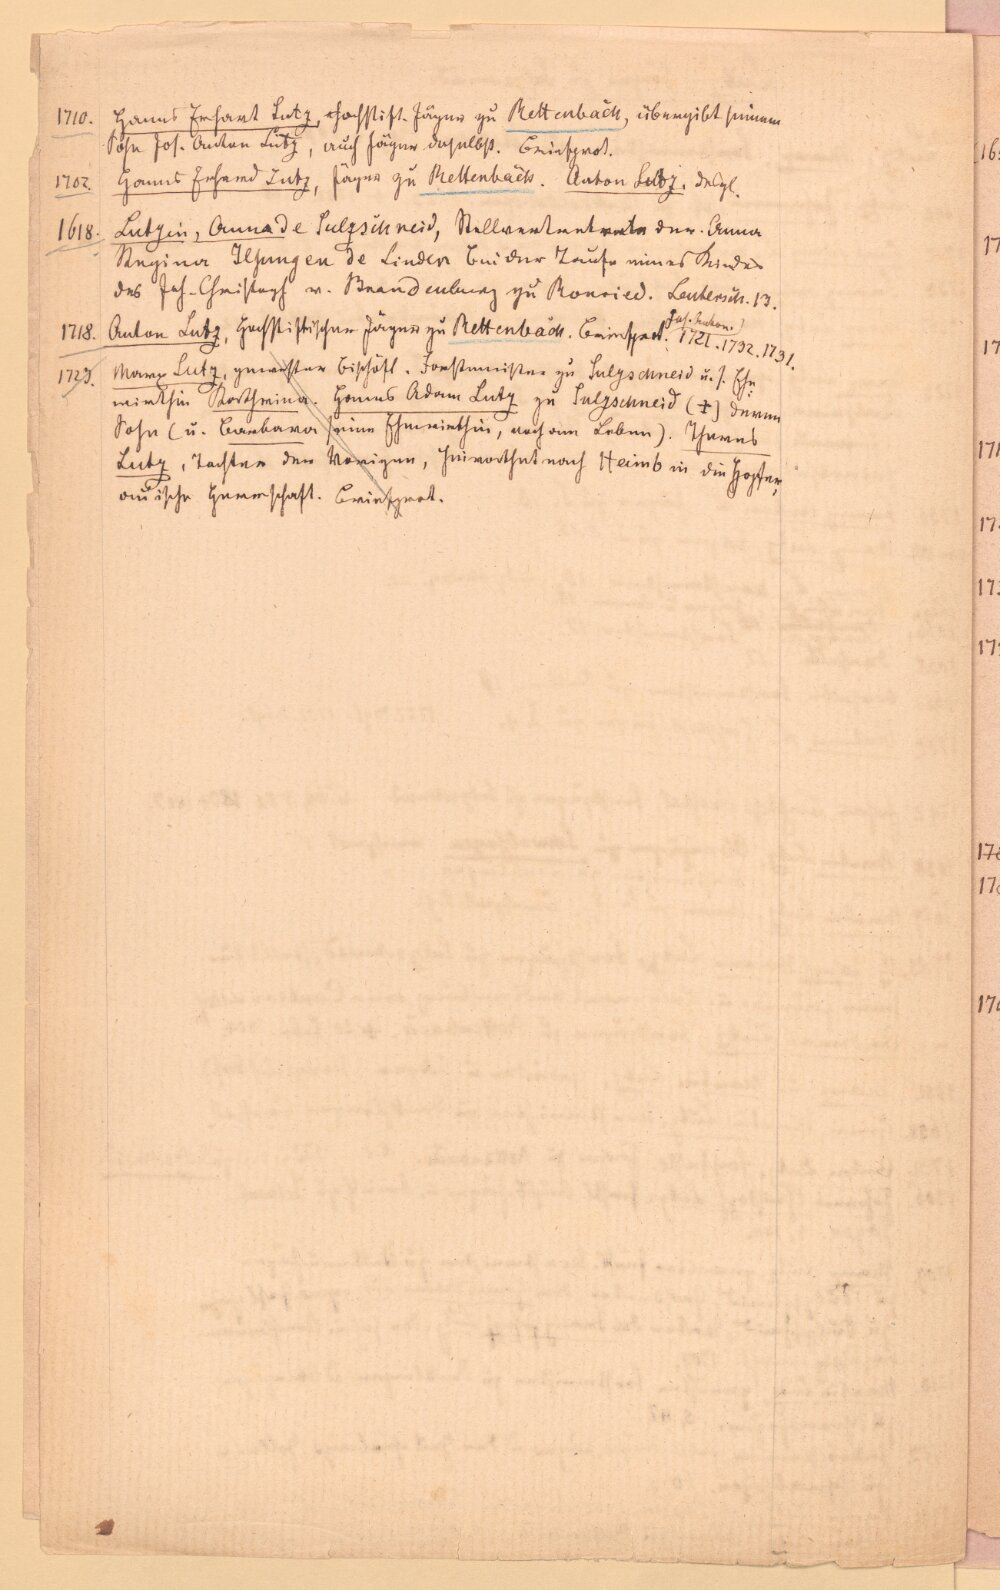 1710. Hanns Erhart Lutz, Hochstift. Jäger zu Rettenbach, übergibt seinem
Sohn Jos. Anton Lutz, auch Jäger daselbst. Briefsprot.
1702. Hanns Erhard Lutz, Jäger zu Rettenbach. Anton Lutz, desgl.
1618. Lutzin, Anna de Sulzschneid, Stellvertreterin der Anna
Regina Ilsungen de Linden bei der Taufe eines Kindes
des Joh. Christoph v. Brandenburg zu Ronried. Leutersch. 13.
1718. Anton Lutz, Hochstiftischer Jäger zu Rettenbach. Briefsprot. 1721. 1732. 1731.
1723. Marx Lutz, gewester bischöfl. Forstmeister zu Sulzschneid u. s. Ehe
wirthin. Hanns Adam Lutz zu Sulzschneid (†) deren
Sohn (u. Barbara seine Ehewirthin, noch am Leben). Theres
Lutz, Tochter der Vorigen, heirathet nach Heimb in die Hopfer
auische Herrschaft. Briefsprot.